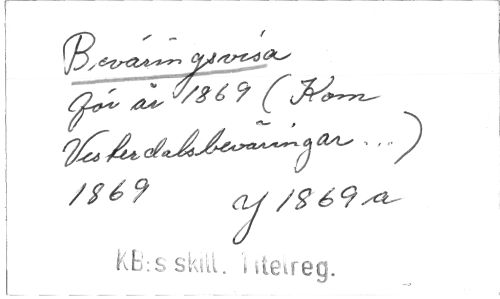 Beväringsvisa
för år 1869 (Kom
Vesterdalsbeväringar ...)
1869 Y 1869 a
KB:s skill. Titelreg.